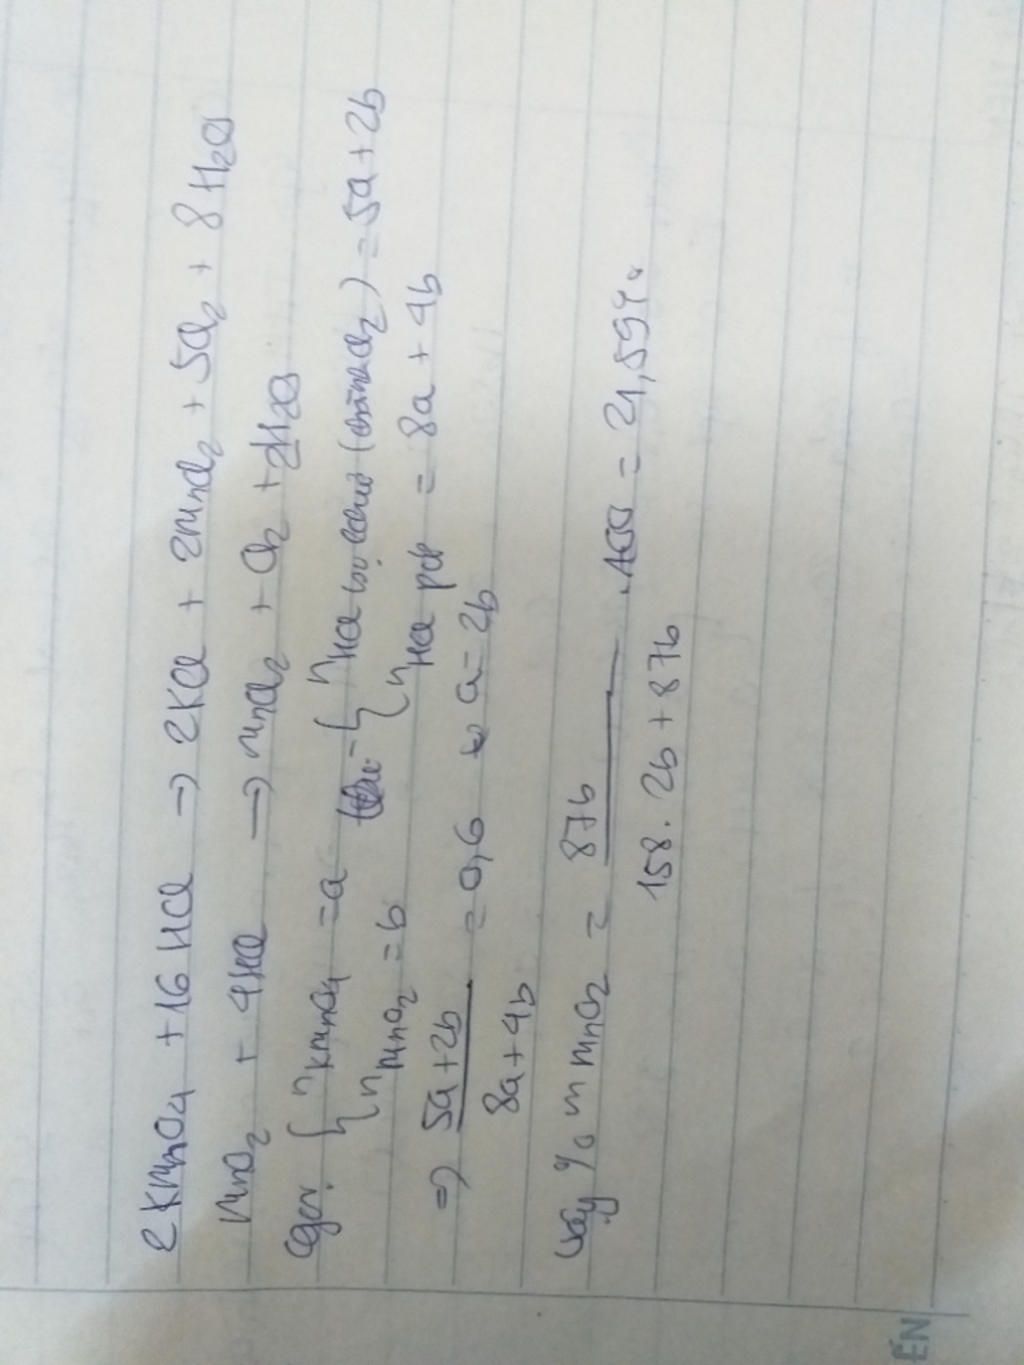 2KMnO4 + 16HCl → 2KCl + 2MnCl2 + 5Cl2 + 8H2O
MnO2 + 4HCl → MnCl2 + Cl2 + 2H2O
Gọi { nKMnO4 = a { nHCl bị oxi hoá (thành Cl2) = 5a + 2b
nMnO2 = b nHCl pứ = 8a + 4b
⇒ 5a+2b / 8a+4b = 0,6 a = 2b
Vậy % m MnO2 = 87b / 158.2b + 87b .100 = 21,59%
ÊN